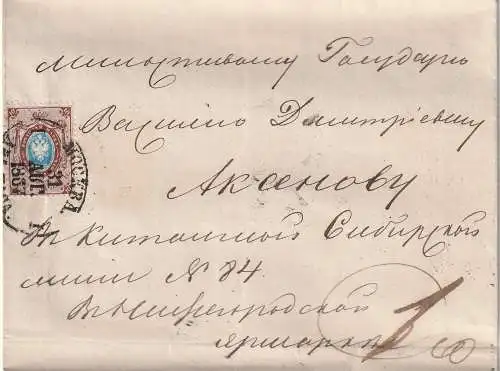 Милостивому Государю
Василию Дмитріевичу
Аксенову
въ Китайской Сибирской
линіи № 84
въ Нижегородской
Ярмаркѣ
МОСКВА
31